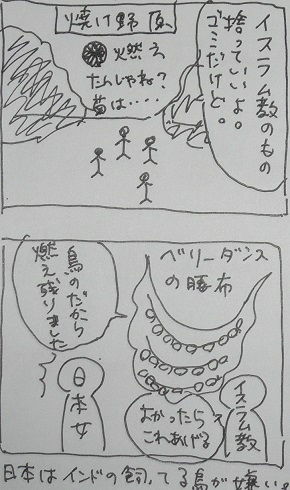 焼け野原
イスラム教のもの
捨っていいよ。
ゴミだけど。
燃え
たんじゃね?
昔は・・・・
ベリーダンス
の腰布
鳥のだから
燃え残りました
日本女
イスラム教
よかったら
これあげる
日本はインドの飼ってる鳥が嫌い。